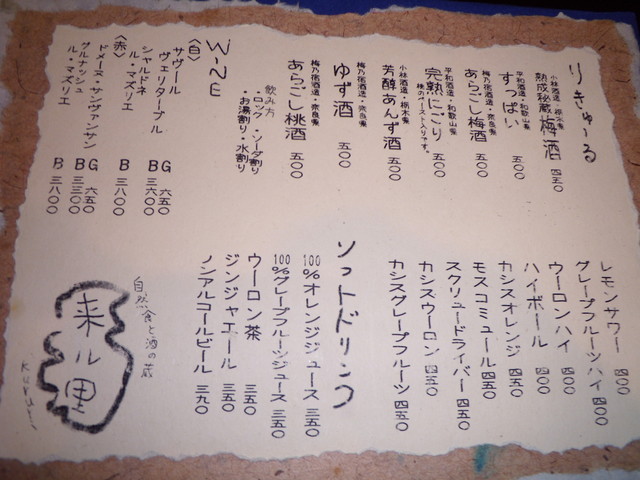 りきゅーる
小林酒造・栃木県
熟成秘蔵 梅酒 四五〇
平和酒造・和歌山県
すっぱい 五〇〇
梅乃宿酒造・奈良県
あらごし梅酒 五〇〇
平和酒造・和歌山県
完熟にごり 五〇〇
桃のペースト入りです。
小林酒造・栃木県
芳醇あんず酒 五〇〇
梅乃宿酒造・奈良県
ゆず酒 五〇〇
梅乃宿酒造・奈良県
あらごし桃酒 五〇〇
飲み方
・ロック ・ソーダ割り
・お湯割り ・水割り
WINE
〈白〉
サヴール
ヴェリターブル G 六五〇
シャルドネ B 三六〇〇
ル・マズリエ
B 三八〇〇
〈赤〉
ドメーヌ・サンヴァンサン G 六五〇
グルナッシュ B 三三〇〇
ル・マズリエ
B 三八〇〇
レモンサワー 四〇〇
グレープフルーツハイ 四〇〇
ウーロンハイ 四〇〇
ハイボール 四〇〇
カシスオレンジ 四五〇
モスコミュール 四五〇
スクリュードライバー 四五〇
カシスウーロン 四五〇
カシスグレープフルーツ 四五〇
ソフトドリンク
100%オレンジジュース 三五〇
100%グレープフルーツジュース 三五〇
ウーロン茶 三五〇
ジンジャエール 三五〇
ノンアルコールビール 三九〇
自然食と酒の蔵
来ル里